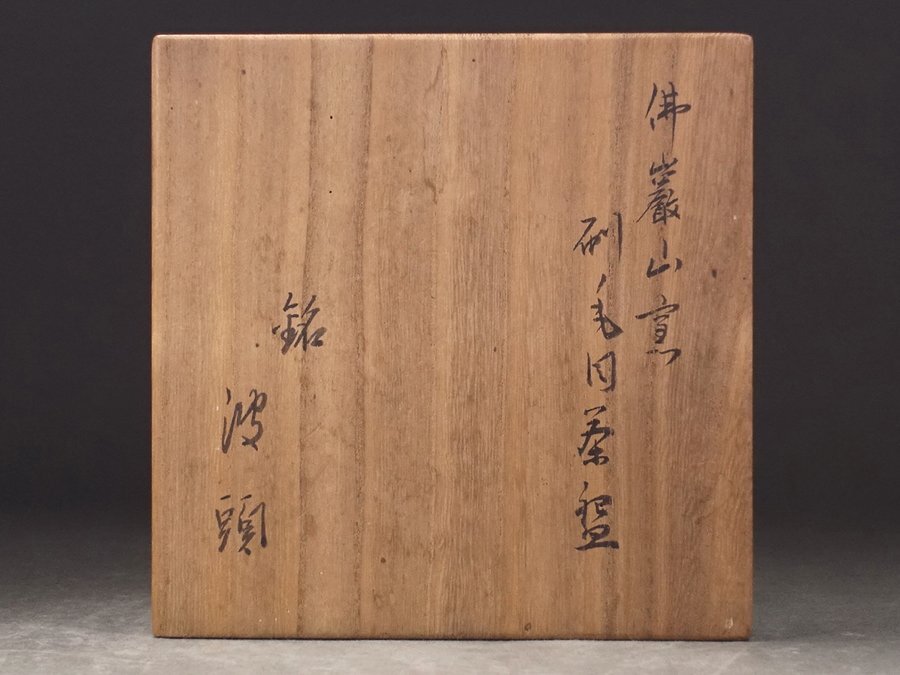 佛巖山窯
刷毛目茶盌
銘
波頭